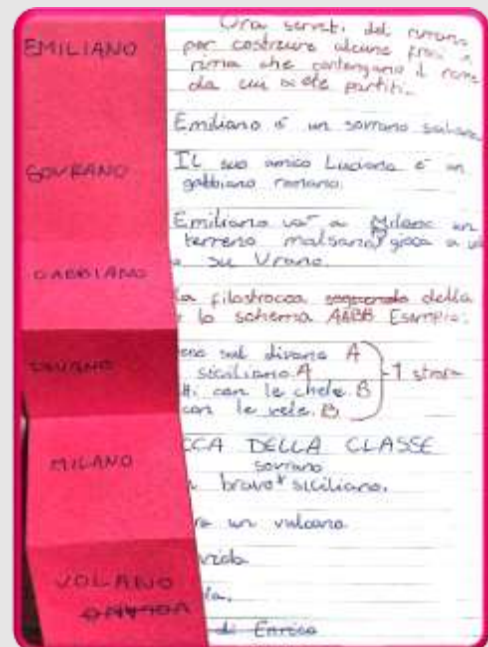 EMILIANO
SOVRANO
GABBIANO
DIVANO
MILANO
VOLANO
Ora serviti del rimario
per costruire alcune frasi
rima che contengano il nome
da cui siete partiti.
Emiliano è un sovrano
Il suo amico Luciano è un
gabbiano romano.
Emiliano va a Milano un
terreno malsano, gioca a
su Urano.
la filastrocca della
lo schema AABB Esempio:
sul divano A
siciliano. A
con le chele. B
con le vele. B
1
CCA DELLA CLASSE
sovrano
bravo siciliano.
un vulcano
di Enrico